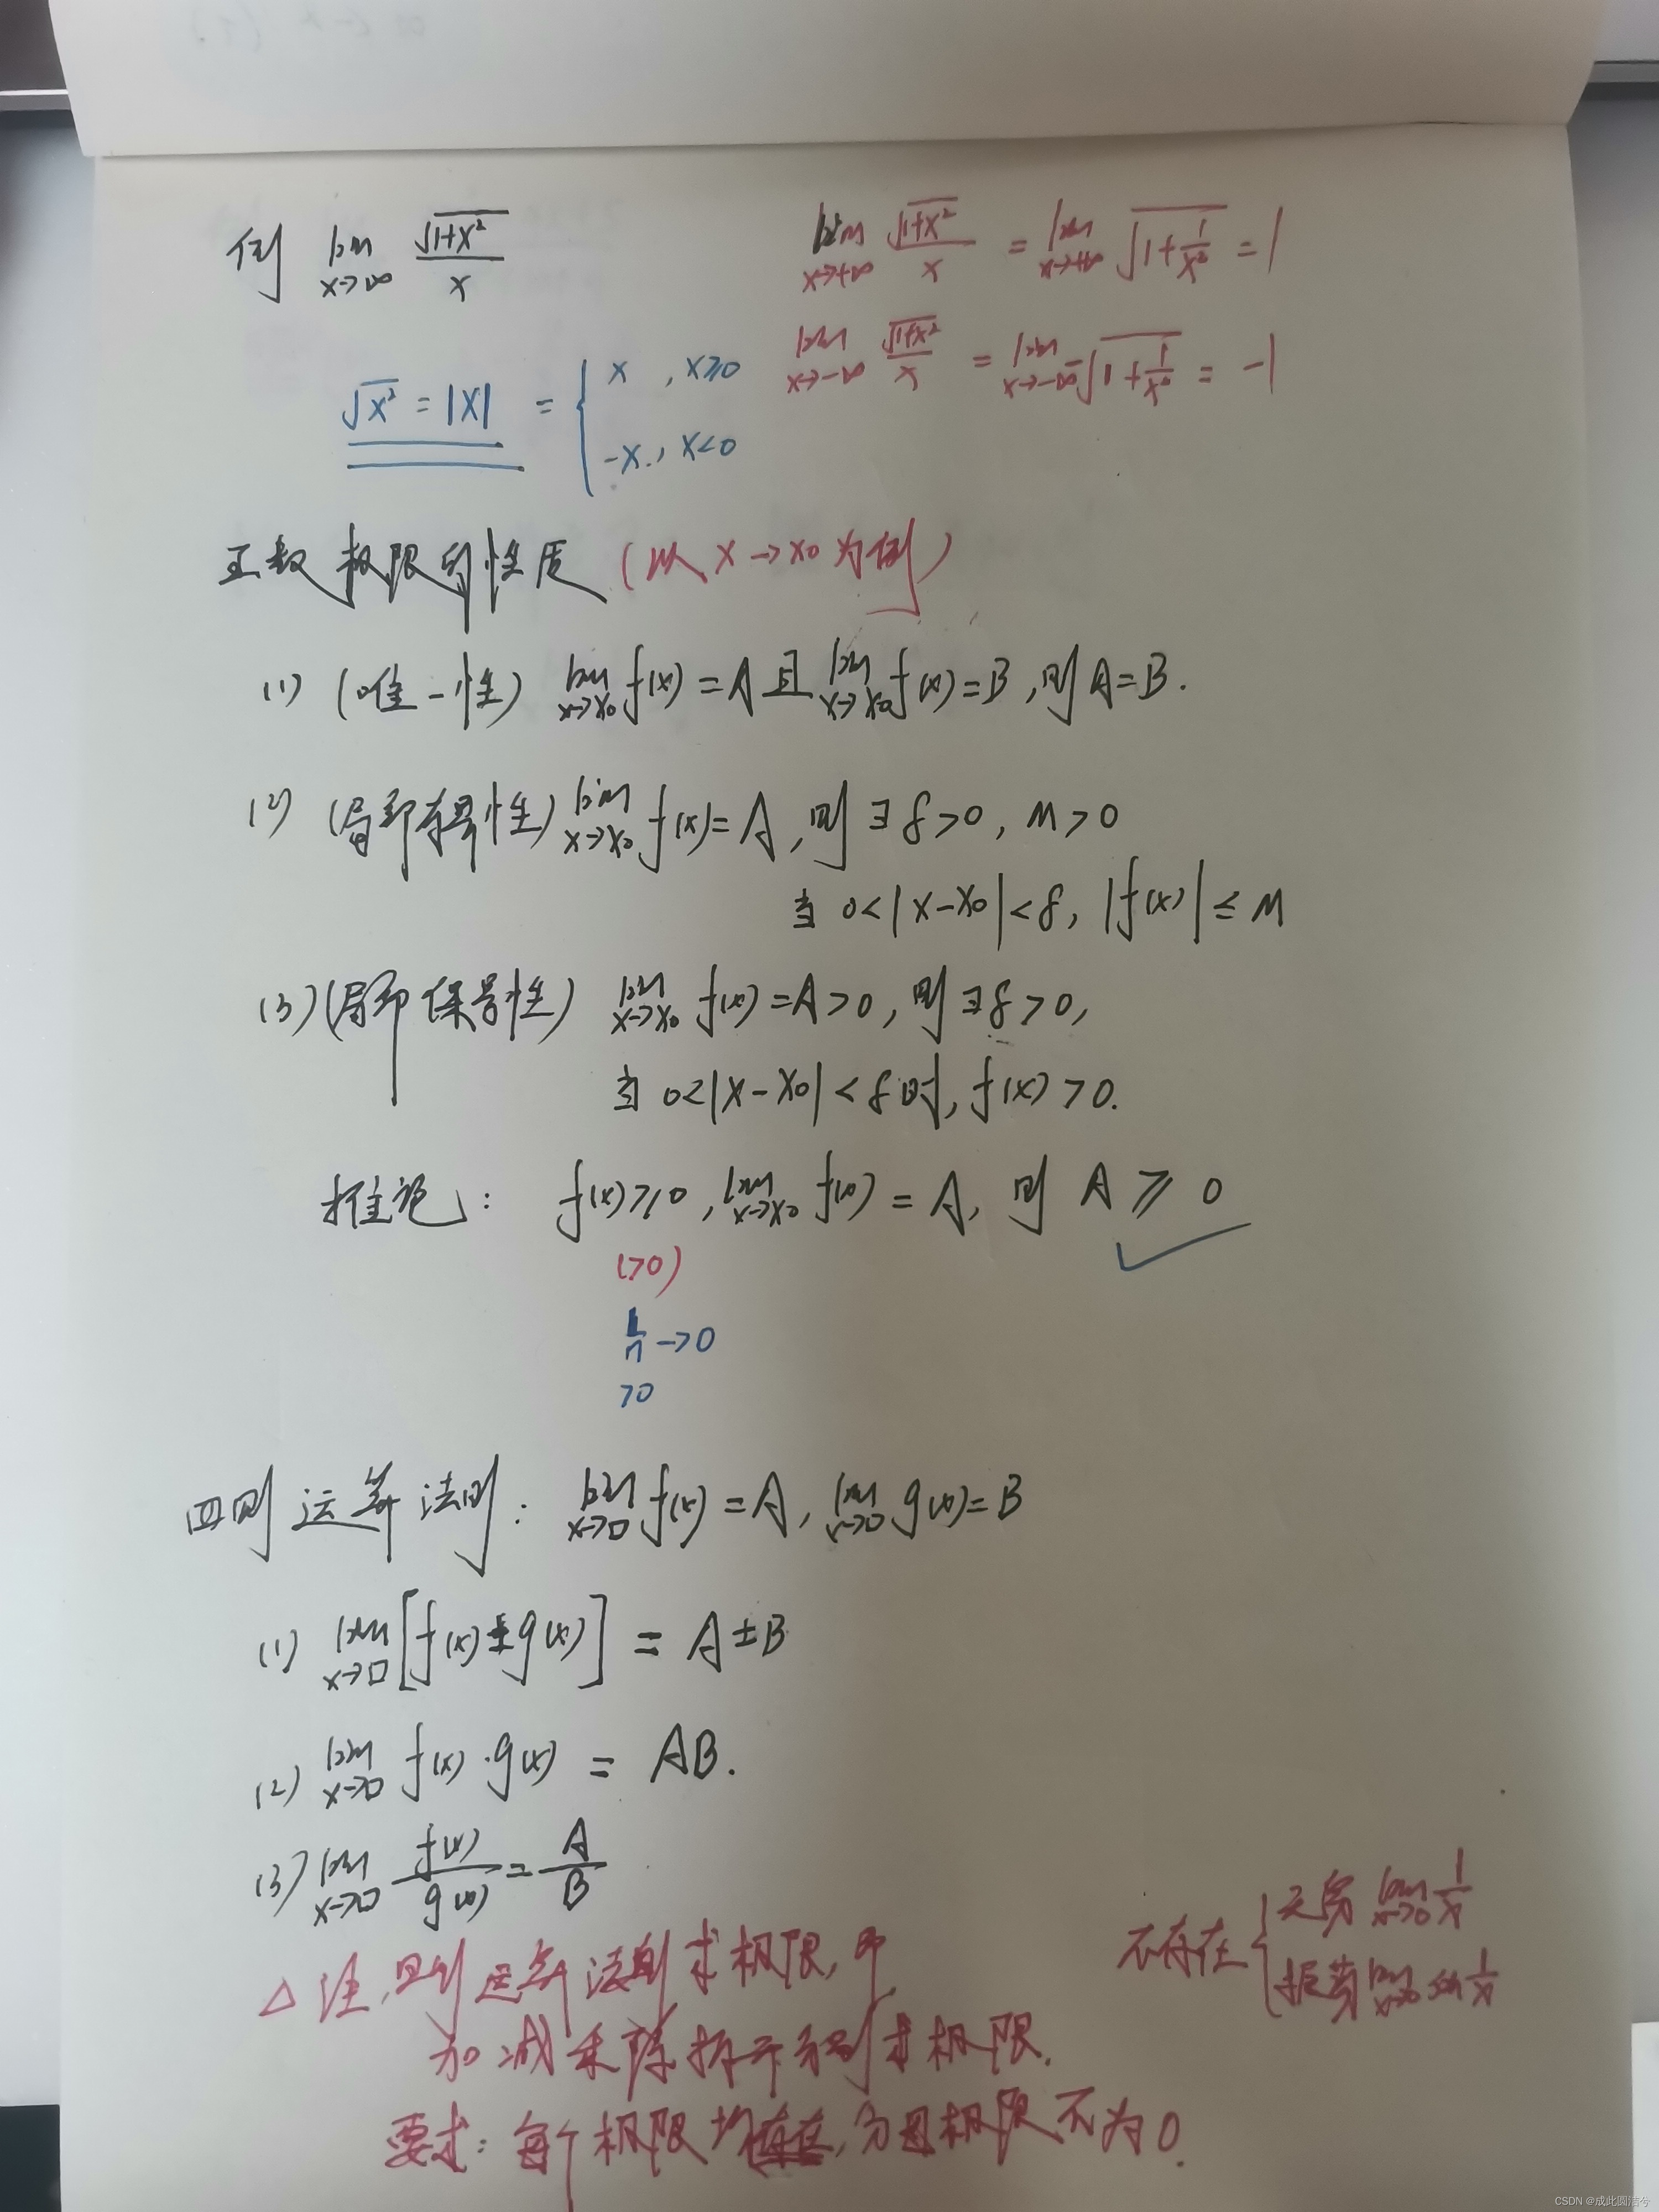 例 lim x→∞ √(1+x²)/x
lim x→+∞ √(1+x²)/x = lim x→+∞ √(1+1/x²) = 1
lim x→-∞ √(1+x²)/x = lim x→-∞ -√(1+1/x²) = -1
√x² = |X| = { x , x≥0
-x , x<0
数极限的性质 (以 x→x0 为例)
(1) (唯一性) lim x→x0 f(x) = A 且 lim x→x0 f(x) = B ,则 A=B.
(2) (局部有界性) lim x→x0 f(x) = A ,则 ∃ δ>0 , M>0
当 0<|x-x0|<δ, |f(x)| ≤ M
(3) (局部保号性) lim x→x0 f(x) = A>0 ,则 ∃ δ>0,
当 0<|x-x0|<δ 时, f(x)>0.
推论: f(x)≥0 , lim x→x0 f(x) = A, 则 A ≥ 0
(>0)
1/n →0
>0
四则运算法则: lim x→□ f(x) = A, lim x→□ g(x) = B
(1) lim x→□ [f(x)±g(x)] = A±B
(2) lim x→□ f(x)·g(x) = AB.
(3) lim x→□ f(x)/g(x) = A/B
△ 注,四则运算法则求极限,即
加减乘除拆开分别求极限.
要求: 每个极限均存在, 分母极限不为0.
不存在 { 无穷 lim x→0 1/x
振荡 lim x→0 sin 1/x
CSDN @成此圆清兮